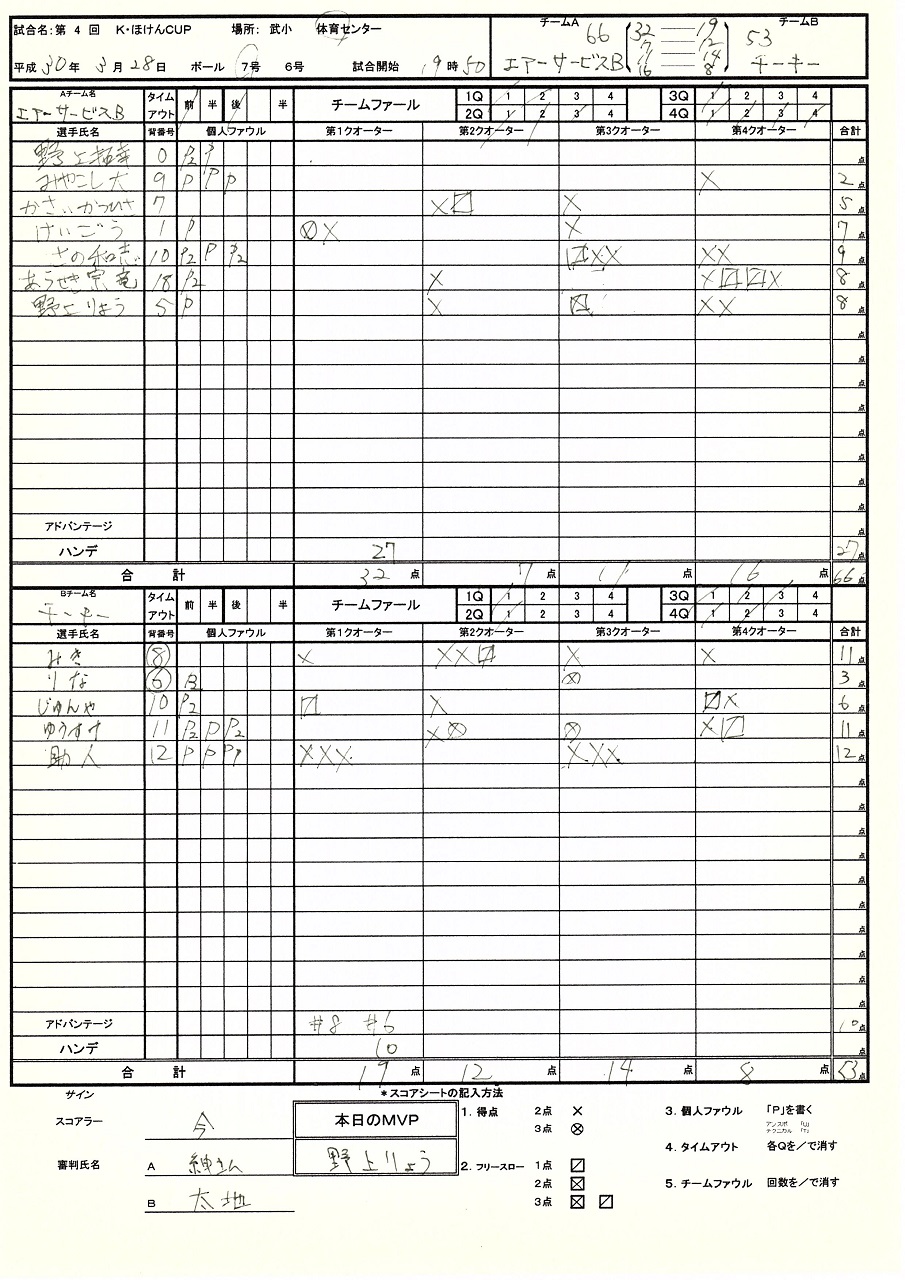 試合名：第 4 回 K・ほけんCUP 場所： 武小 体育センター
平成 30年 3月 28日 ボール 7号 6号 試合開始 19時50
チームA 66 32 ― 19 チームB
7 ― 12 53
エアーサービスB 11 ― 14 チーキー
16 ― 8
Aチーム名 タイムアウト 前 半 後 半 チームファール 1Q 1 2 3 4 3Q 1 2 3 4
エアーサービスB 2Q 1 2 3 4 4Q 1 2 3 4
選手氏名 背番号 個人ファウル 第1クオーター 第2クオーター 第3クオーター 第4クオーター 合計
野上拓幸 0 P2 P 点
みやこし大 9 P P P X 2点
かさいかつひさ 7 X ☒ X 5点
けいごう 1 P ⊗ X X 7点
さの和志 10 P2 P P2 〼 X X X X 9点
あらせき宗竜 18 P2 X X 〼 〼 X 8点
野上りょう 5 P X ☒ X X 8点
アドバンテージ 点
ハンデ 27 27点
合 計 32点 7点 11点 16点 66点
Bチーム名 タイムアウト 前 半 後 半 チームファール 1Q 1 2 3 4 3Q 1 2 3 4
チーキー 2Q 1 2 3 4 4Q 1 2 3 4
選手氏名 背番号 個人ファウル 第1クオーター 第2クオーター 第3クオーター 第4クオーター 合計
みき 8 X X X 〼 X X 11点
りな 6 ⊗ 3点
じゅんや 10 P2 〼 X 〼 X 6点
ゆうすけ 11 P2 P P2 X ⊗ ⊗ X 〼 11点
助人 12 P P P X X X X X X 12点
アドバンテージ #8 #6 10点
ハンデ 10 点
合 計 19点 12点 14点 8点 53点
サイン
スコアラー 今
審判氏名 A 紳さん
B 太地
本日のMVP
野上りょう
*スコアシートの記入方法
1. 得点 2点 X
3点 ⊗
2. フリースロー 1点 〼
2点 ☒
3点 ☒ 〼
3. 個人ファウル 「P」を書く
アンスポ 「U」
テクニカル 「T」
4. タイムアウト 各Qを/で消す
5. チームファウル 回数を/で消す